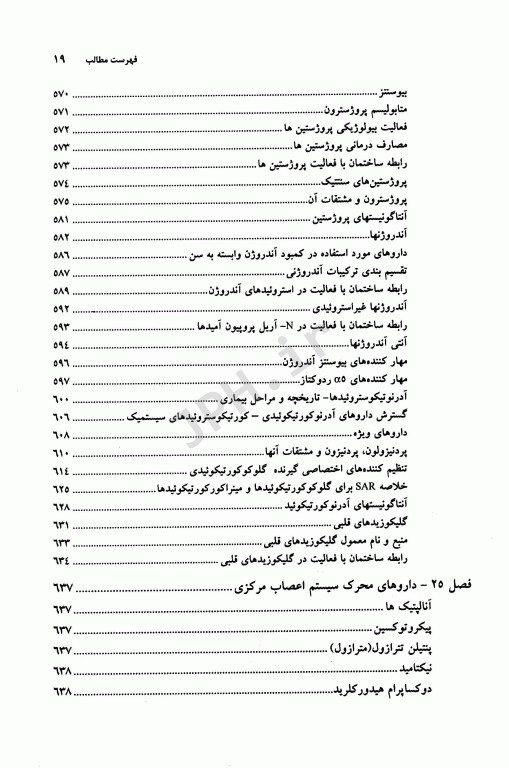 فهرست مطالب ۱۹
بیوسنتز ۵۷۰
متابولیسم پروژسترون ۵۷۱
فعالیت بیولوژیکی پروژستین ها ۵۷۲
مصارف درمانی پروژستین ها ۵۷۳
رابطه ساختمان با فعالیت پروژستین ها ۵۷۳
پروژستین‌های سنتتیک ۵۷۴
پروژسترون و مشتقات آن ۵۷۵
آنتاگونیستهای پروژستین ۵۸۱
آندروژنها ۵۸۲
داروهای مورد استفاده در کمبود آندروژن وابسته به سن ۵۸۶
تقسیم بندی ترکیبات آندروژنی ۵۸۷
رابطه ساختمان با فعالیت در استروئیدهای آندروژن ۵۸۹
آندروژنها غیراستروئیدی ۵۹۲
رابطه ساختمان با فعالیت در N- آریل پروپیون آمیدها ۵۹۳
آنتی آندروژنها ۵۹۴
مهار کننده‌های بیوسنتز آندروژن ۵۹۶
مهار کننده‌های ۵α ردوکتاز ۵۹۷
آدرنوتیکوستروئیدها- تاریخچه و مراحل بیماری ۶۰۰
گسترش داروهای آدرنوکورتیکوئیدی – کورتیکوستروئیدهای سیستمیک ۶۰۶
داروهای ویژه ۶۰۸
پردنیزولون، پردنیزون و مشتقات آنها ۶۱۰
تنظیم کننده‌های اختصاصی گیرنده گلوکوکورتیکوئیدی ۶۱۴
خلاصه SAR برای گلوکوکورتیکوئیدها و مینراکورکورتیکوئیدها ۶۲۵
آنتاگونیستهای آدرنوکورتیکوئید ۶۲۸
گلیکوزیدهای قلبی ۶۳۱
منبع و نام معمول گلیکوزیدهای قلبی ۶۳۳
رابطه ساختمان با فعالیت در گلیکوزیدهای قلبی ۶۳۴
فصل ۲۵ - داروهای محرک سیستم اعصاب مرکزی ۶۳۷
آنالپتیک ها ۶۳۷
پیکروتوکسین ۶۳۷
پنتیلن تترازول(مترازول) ۶۳۷
نیکتامید ۶۳۸
دوکساپرام هیدورکلرید ۶۳۸
JPH.ir